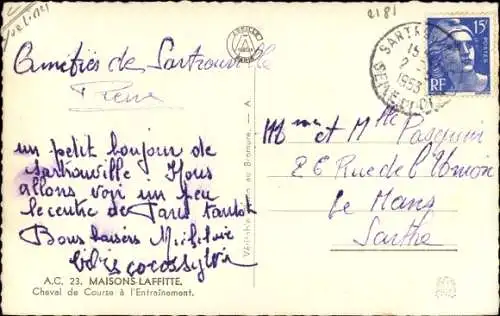 2181
Amitiés de Sartrouville
Pierre
un petit bonjour de
Sartrouville! Nous
allons voir un peu
le centre de Paris tantôt
Bons baisers
A.C. 23. MAISONS-LAFFITTE.
Cheval de Course à l'Entraînement.
ARMELLE
PARIS
Véritable au Bromure. — A.
SARTROU
15
2
1953
SEINE-ET-OI
15F
POSTES
RF
Mme et Mlle Pasquier
26 Rue de l'Union
Le Mans
Sarthe